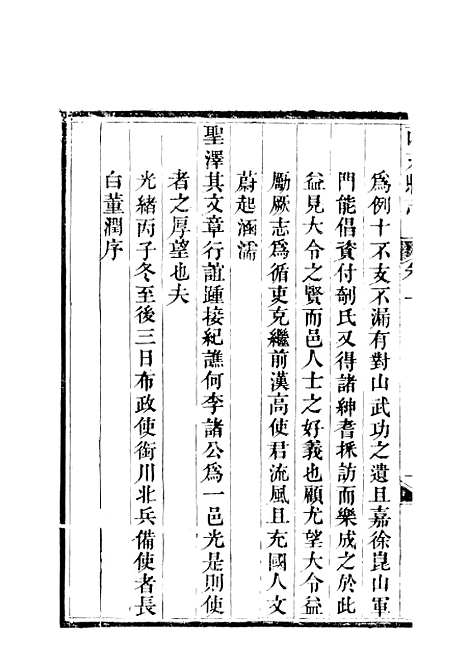 為例十不支不漏有對山武功之遺且嘉徐崑山軍
門能倡資付剞氏又得諸紳耆採訪而樂成之於此
益見大令之賢而邑人士之好義也顧尤望大令益
勵厥志為循吏克繼前漢高使君流風且充國人文
蔚起涵濡
聖澤其文章行誼踵接紀譙何李諸公為一邑光是則使
者之厚望也夫
光緒丙子冬至後三日布政使銜川北兵備使者長
白董潤序